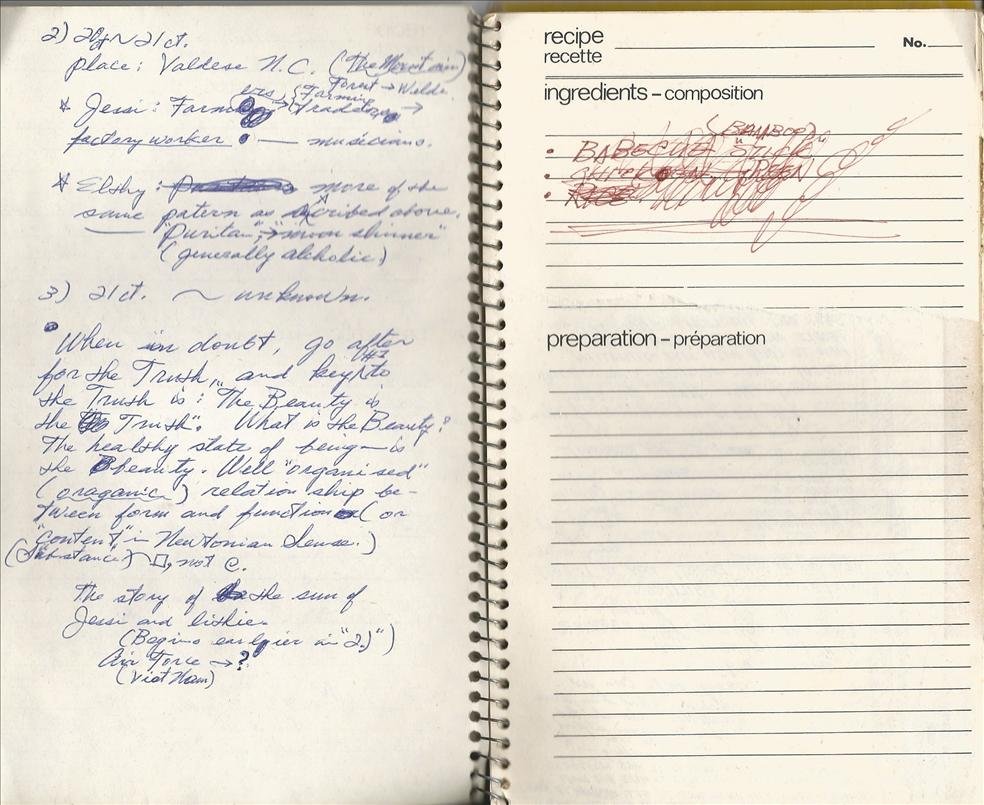 2) 20 ~ 21ct.
place: Valdese N.C. (The Mountain)
Forest → Wilde
* Jessi: Farm ers → Farming →
factory worker — musicians.
* Elshy: more of the
same patern as scribed above.
"Puritan" → moon shinner"
(generally alcholic)
3) 21ct. ~ unknown.
When in doubt, go after
for the Truth, and key #1 to
the Truth is: The Beauty is
the Truth". What is the Beauty?
The healthy state of being is
the beauty. Well "organised"
(oraganic) relation ship be-
tween form and function (or
"content" in Newtonian Sense.)
(Substance) □, not C.
The story of the sun of
Jessi and
(Begins earlpier in "2)")
Air Force → ?
(Viet Nam)
recipe
recette
No.
ingredients – composition
(BAMBOO)
• BABECUE "STICK"
• GREEN
•
preparation – préparation